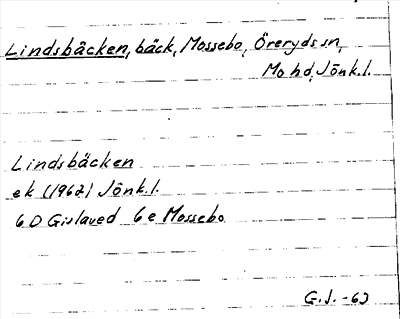 Lindsbäcken, bäck, Mossebo, Öreryds sn,
Mo hd, Jönk.l.
Lindsbäcken
ek (1962) Jönk.l.
6D Gislaved 6e Mossebo
G.J. -63